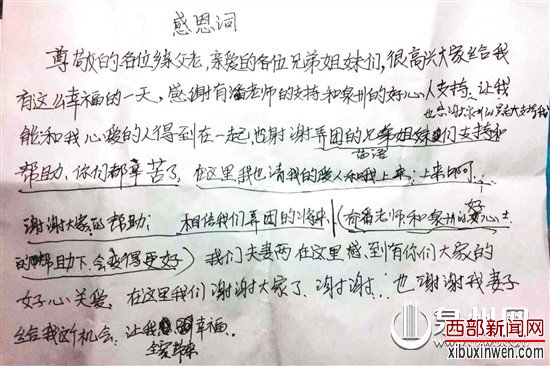 感恩词
尊敬的各位乡亲父老，亲爱的各位兄弟姐妹们，很高兴大家给我
有这么幸福的一天，感谢有潘老师的支持和泉州的好心人支持，让我
能和我心爱的人得到在一起，也谢谢弄困的兄弟姐妹们支持和
苗语
帮助，你们都辛苦了，在这里我也请我的爱人和我上来：上来
谢谢大家的帮助： 相信我们弄困的 （有潘老师和泉州的好心士
的帮助下会变得更好） 我们夫妻两在这里感到有你们大家的
好心关爱，在这里我们谢谢大家了，谢谢：也谢谢我妻子
给我这个机会，让我幸福。
泉州网
西部新闻网
xibuxinwen.com